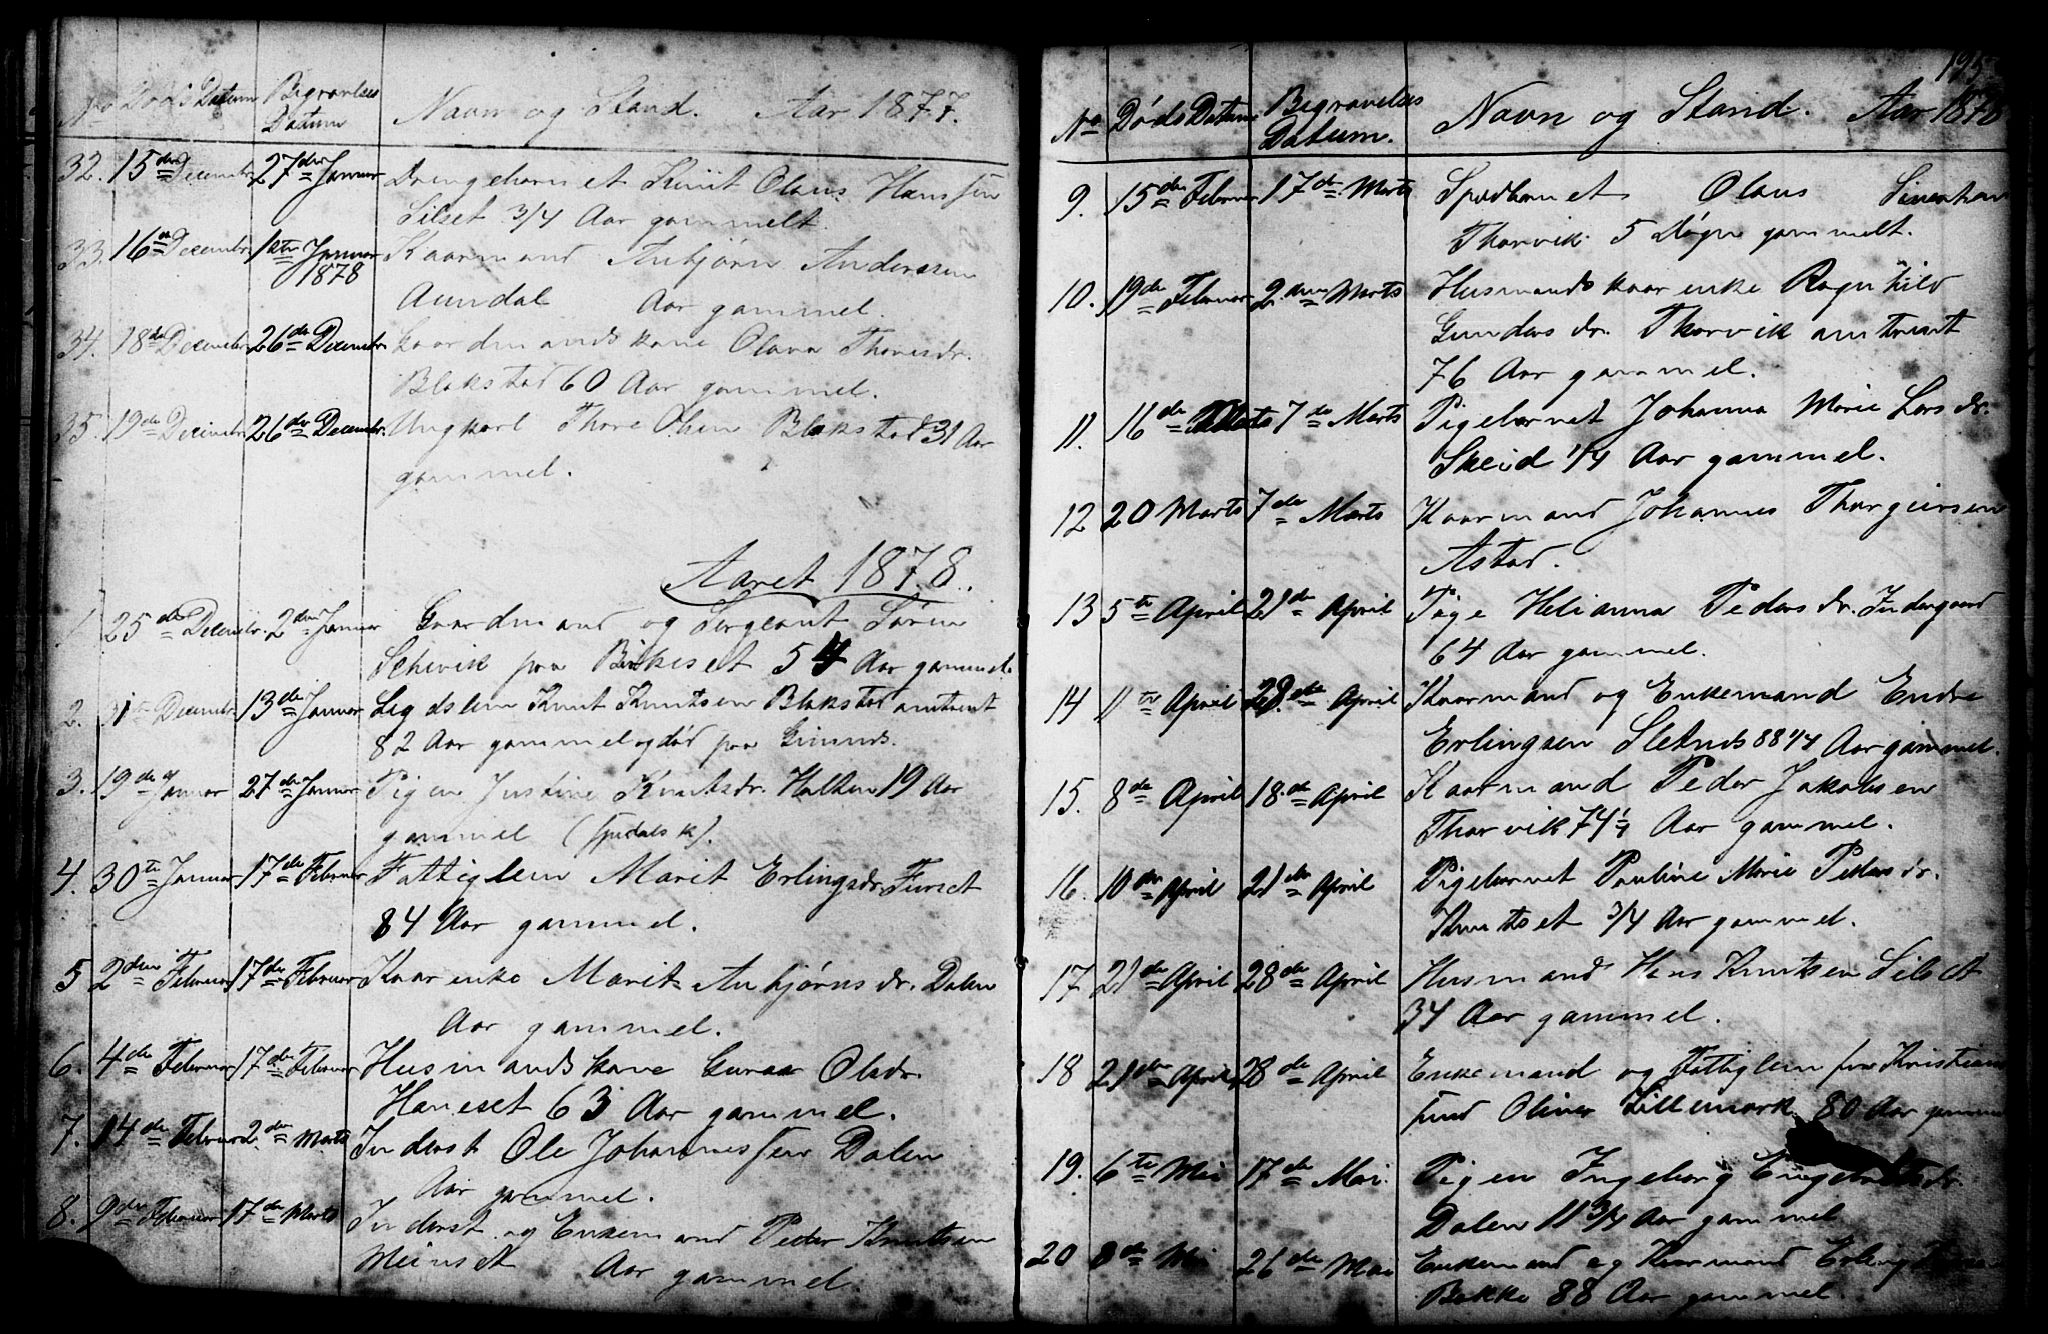 No Døds Datum Begravelses Datum Navn og Stand. Aar 1877.
32. 15de December 27de Januar Drengebarnet Knut Olaus Hanssen
Lilset 3/4 Aar gammelt.
33. 16de December 1ste Januar 1878 Kaarmand Anbjørn Anderssen
Aundal Aar gammel.
34. 18de December 26de December Gaardmandskone Olava Thoresdr.
Blakstad 60 Aar gammel.
35. 19de December 26de December. Ungkarl Thore Olsen Blakstad 31 Aar
gammel.
Aaret 1878.
1. 25de December. 2den Januar Gaardmand og Sergeant Søren
Schevik paa Birkeset 54 Aar gammel.
2. 31te December 13de Januar Lægdslem Knut Knutsen Blakstad omtrent
82 Aar gammel og død paa
3. 19de Januar 27de Januar Pigen Justine Knutsdr. Halken 19 Aar
gammel (spedalsk).
4. 30te Januar 17de Februar Fattiglem Marit Erlingsdr. Furset
84 Aar gammel.
5 2den Februar 17de Februar Kaarenke Marit Anbjørnsdr. Dalen
Aar gammel.
6. 4de Februar 17de Februar Husmandskone Guraa Olsdr.
Haneset 63 Aar gammel.
7. 14de Februar 2den Marts Inderst Ole Johannessen Dalen
Aar gammel.
8. 9de Februar 17de Marts Inderst og Enkemand Peder Knutsen
Meinset Aar gammel.
195
No Døds Datum. Begravelses Datum. Navn og Stand. Aar 1878
9. 15de Februar 17de Marts Spædbarnet Olaus
Thorvik 5 Døgn gammelt.
10. 19de Februar 2den Marts Husmandskaarenke Ragnhild
Gundersdr. Thorvik omtrent
76 Aar gammel.
11. 16de Marts 7de Marts Pigebarnet Johanna Marie Larsdr.
Skeid 1/4 Aar gammel.
12 20 Marts 7de Marts Kaarmand Johannes Thorgiersen
Astad.
13 5te April 21de April Pige Helianna Pedersdr. Indergaard
64 Aar gammel.
14 11te April 28.de April Kaarmand og Enkemand Endre
Erlingsen Sletnes 88 1/4 Aar gammel.
15. 8de April 18.de April Kaarmand Peder Jakobsen
Thorvik 74 1/4 Aar gammel.
16. 10de April 21de April Pigebarnet Pauline Marie Pedersdr.
Knutset 3/4 Aar gammel.
17 21de April 28de April Husmand Hans Knutsen Lilset
34 Aar gammel.
18 21de April 28de April Enkemand og Fattiglem fra Kristian
sund Oliver Lillemork 80 Aar gammel
19. 6te Mai 17de Mai. Pigen Ingeborg Engebretsdr.
Dalen 11 3/4 Aar gammel
20 8de Mai 26de Mai Enkemand og Kaarmand Erling
Bakke 88 Aar gammel.